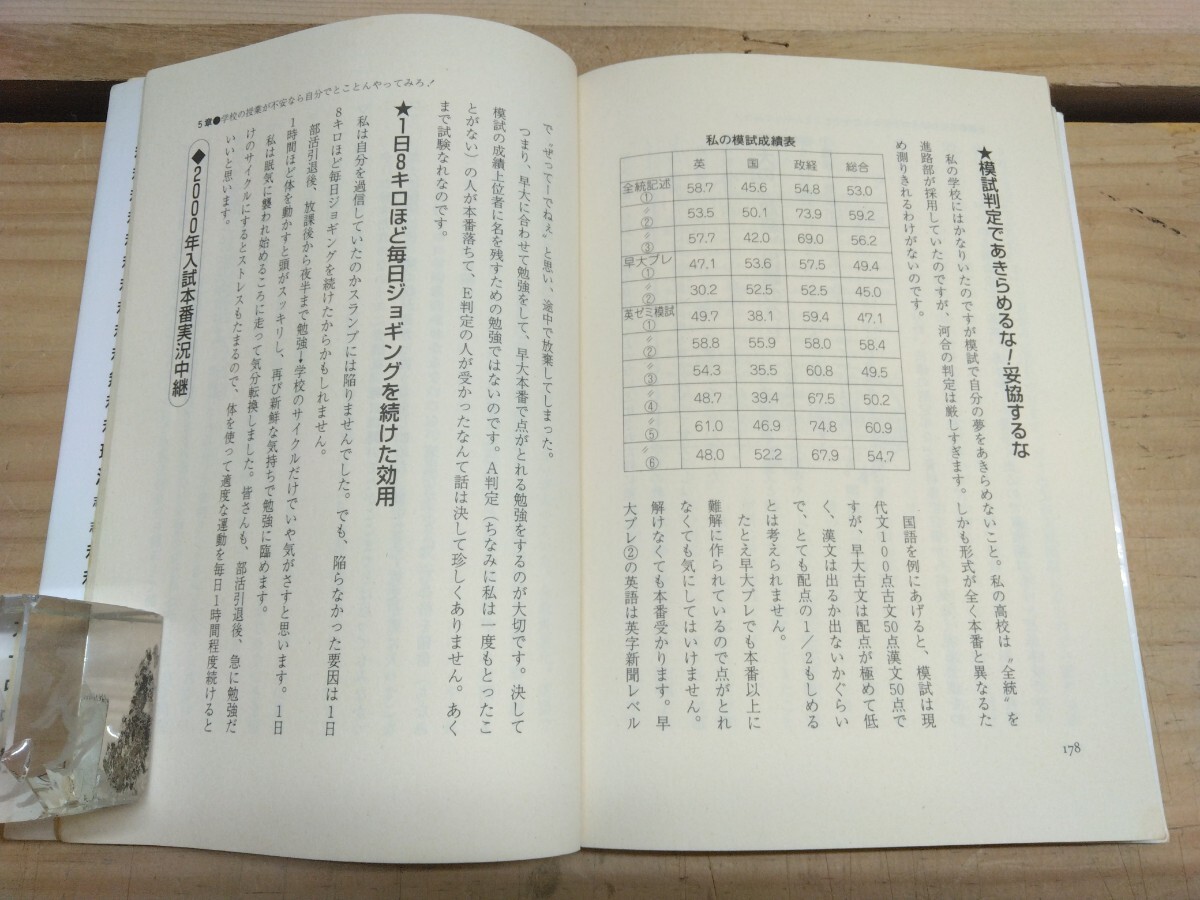 ★模試判定であきらめるな!妥協するな
私の学校にはかなりいたのですが模試で自分の夢をあきらめないこと。私の高校は〝全統〟を
進路部が採用していたのですが、河合の判定は厳しすぎます。しかも形式が全く本番と異なるた
め測りきれるわけがないのです。
私の模試成績表
英 国 政経 総合
全統記述① 58.7 45.6 54.8 53.0
〃② 53.5 50.1 73.9 59.2
〃③ 57.7 42.0 69.0 56.2
早大プレ① 47.1 53.6 57.5 49.4
〃② 30.2 52.5 52.5 45.0
英ゼミ模試① 49.7 38.1 59.4 47.1
〃② 58.8 55.9 58.0 58.4
〃③ 54.3 35.5 60.8 49.5
〃④ 48.7 39.4 67.5 50.2
〃⑤ 61.0 46.9 74.8 60.9
〃⑥ 48.0 52.2 67.9 54.7
国語を例にあげると、模試は現
代文100点古文50点漢文50点で
すが、早大古文は配点が極めて低
く、漢文は出るか出ないかぐらい
で、とても配点の1/2もしめる
とは考えられません。
たとえ早大プレでも本番以上に
難解に作られているので点がとれ
なくても気にしてはいけません。
解けなくても本番受かります。早
大プレ②の英語は英字新聞レベル
178
で〝ぜってーでねぇ〟と思い、途中で放棄してしまった。
つまり、早大に合わせて勉強をして、早大本番で点がとれる勉強をするのが大切です。決して
模試の成績上位者に名を残すための勉強ではないのです。A判定(ちなみに私は一度もとったこ
とがない)の人が本番落ちて、E判定の人が受かったなんて話は決して珍しくありません。あく
まで試験なれなのです。
★1日8キロほど毎日ジョギングを続けた効用
私は自分を過信していたのかスランプには陥りませんでした。でも、陥らなかった要因は1日
8キロほど毎日ジョギングを続けたからかもしれません。
部活引退後、放課後から夜半まで勉強→学校のサイクルだけでいや気がさすと思います。1日
1時間ほど体を動かすと頭がスッキリし、再び新鮮な気持ちで勉強に臨めます。
私は眠気に襲われ始めるころに走って気分転換しました。皆さんも、部活引退後、急に勉強だ
けのサイクルにするとストレスもたまるので、体を使って適度な運動を毎日1時間程度続けると
いいと思います。
◆2000年入試本番実況中継
5章●学校の授業が不安なら自分でとことんやってみろ!